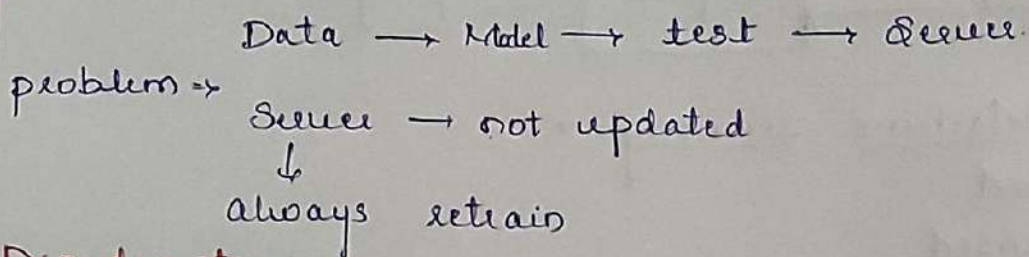 Data → Model → test → Server.
problem ⇒
Server → not updated
↓
always retrain